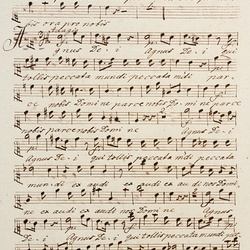 bis ora pro nobis
Agnus De_i Agnus De_i qui
tollis peccata mundi peccata mundi par_
ce nobis Domine parce nobis Domine parce
nobis parce nobis Domine Agnus
Agnus De_i qui tollis peccata mundi peccata
mun_di ex audi ex audi ex au di nos Domi
ne ex audi ex audi nos Domine Agnus
Agnus De_i qui tollis peccata mundi